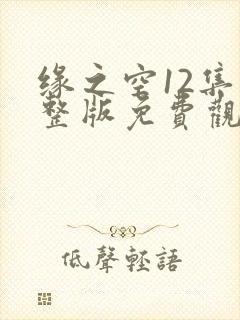 缘之空12集
整版免費觀
低聲輕語